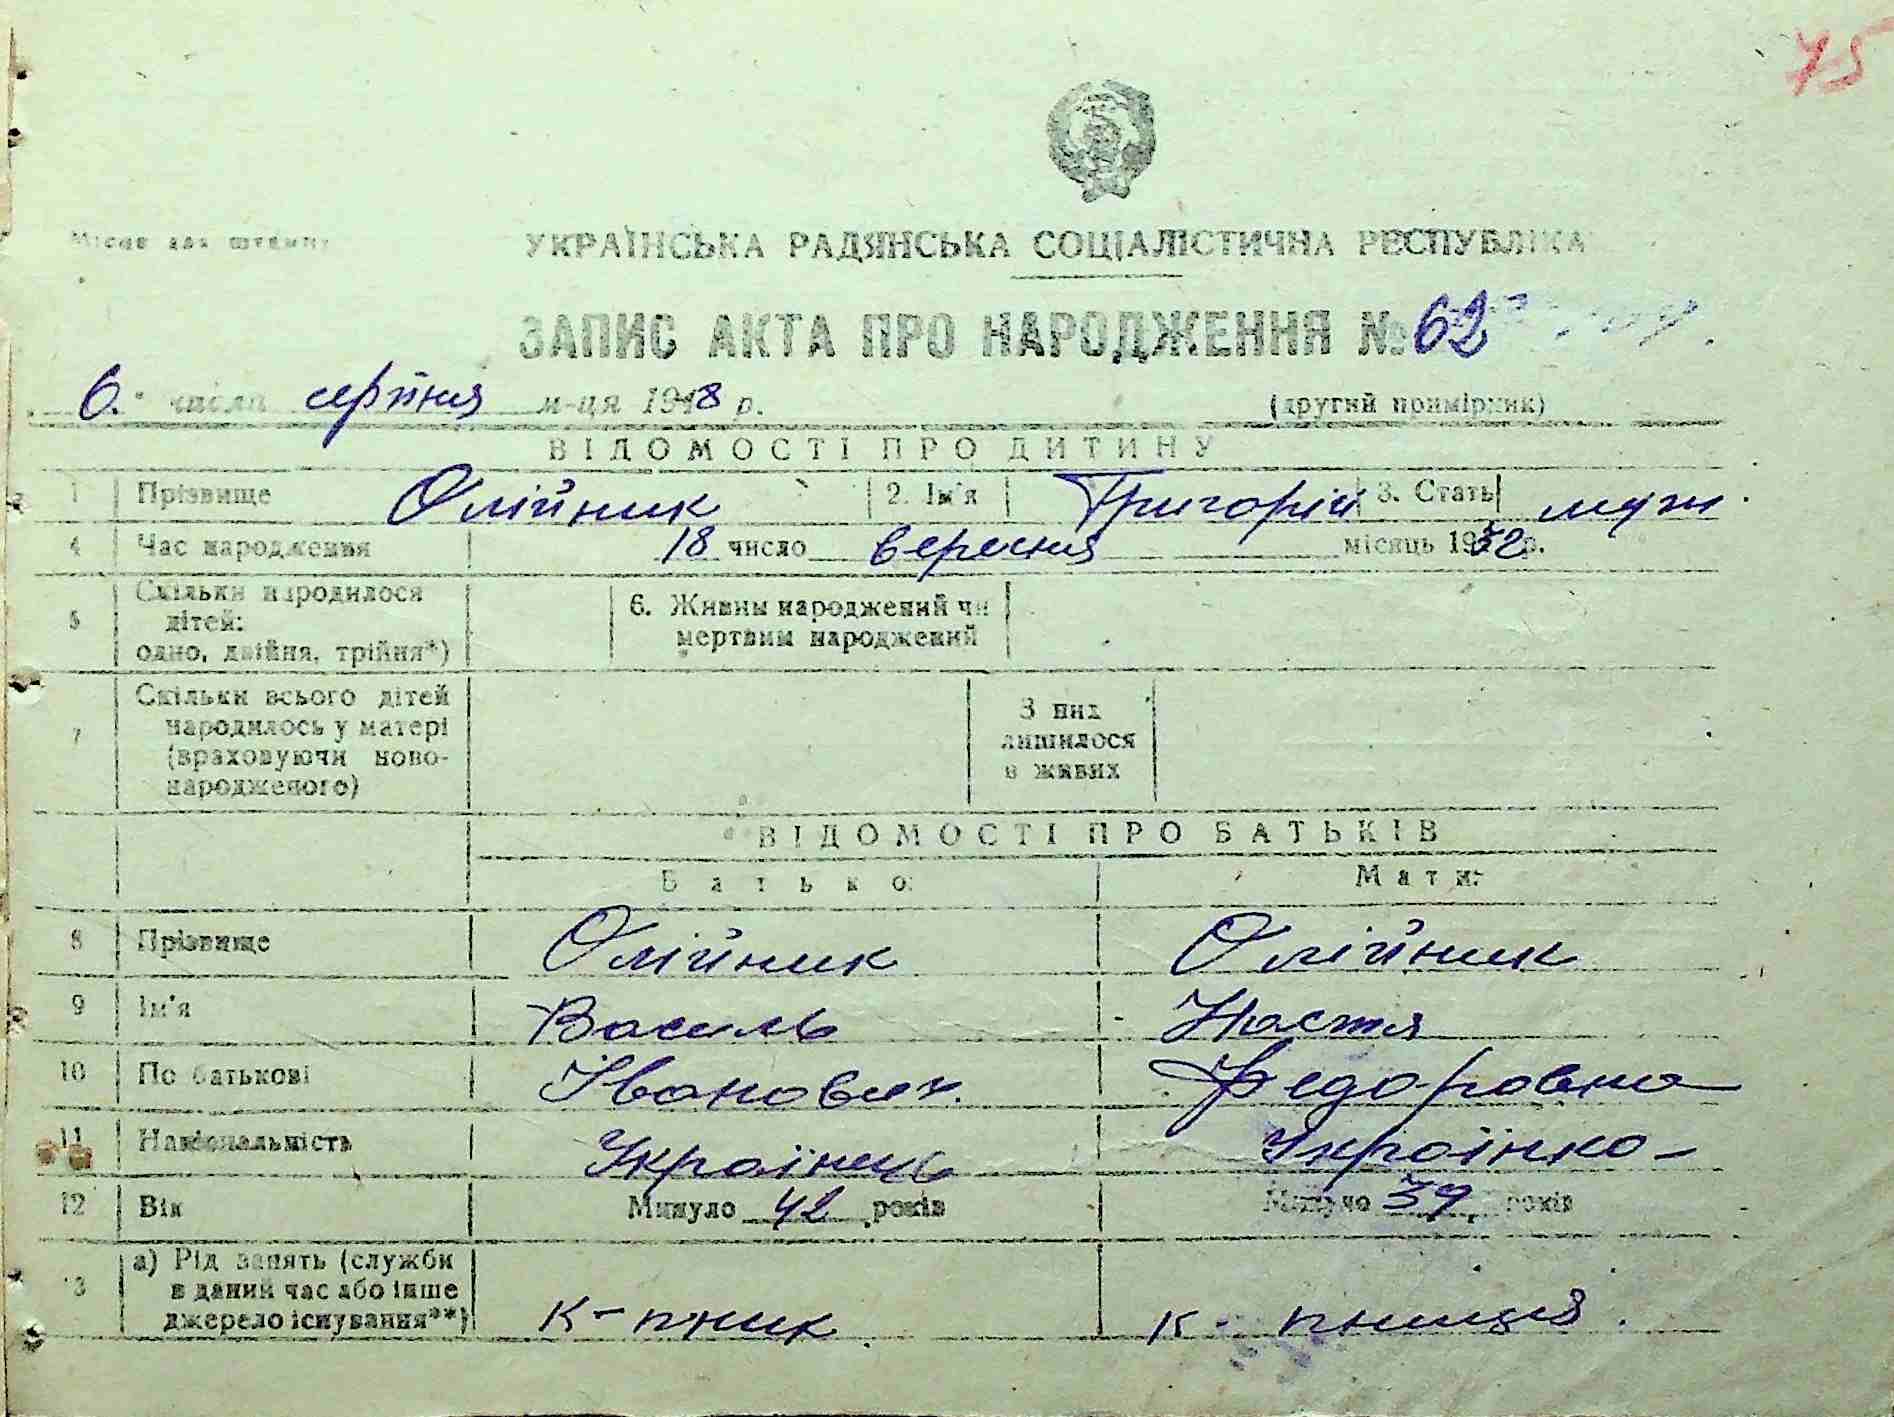 75
Місце для штампу
УКРАЇНСЬКА РАДЯНСЬКА СОЦІАЛІСТИЧНА РЕСПУБЛІКА
ЗАПИС АКТА ПРО НАРОДЖЕННЯ № 62
6. числа серпня м-ця 1948 р. (другий примірник)
ВІДОМОСТІ ПРО ДИТИНУ
1 Прізвище Олійник 2. Ім'я Григорій 3. Стать муж
4 Час народження 18 число вересня місяць 1932 р.
5 Скільки народилося дітей: одно, двійня, трійня*) 6. Живим народжений чи мертвим народжений
7 Скільки всього дітей народилось у матері (враховуючи новонародженого) З них лишилося в живих
ВІДОМОСТІ ПРО БАТЬКІВ
Батько: Мати:
8 Прізвище Олійник Олійник
9 Ім'я Василь Настя
10 По батькові Іванович. Федоровна
11 Національність Українець Українка
12 Вік Минуло 42 років Минуло 39 років
13 а) Рід занять (служби в даний час або інше джерело існування**) к-пник к-пниця.